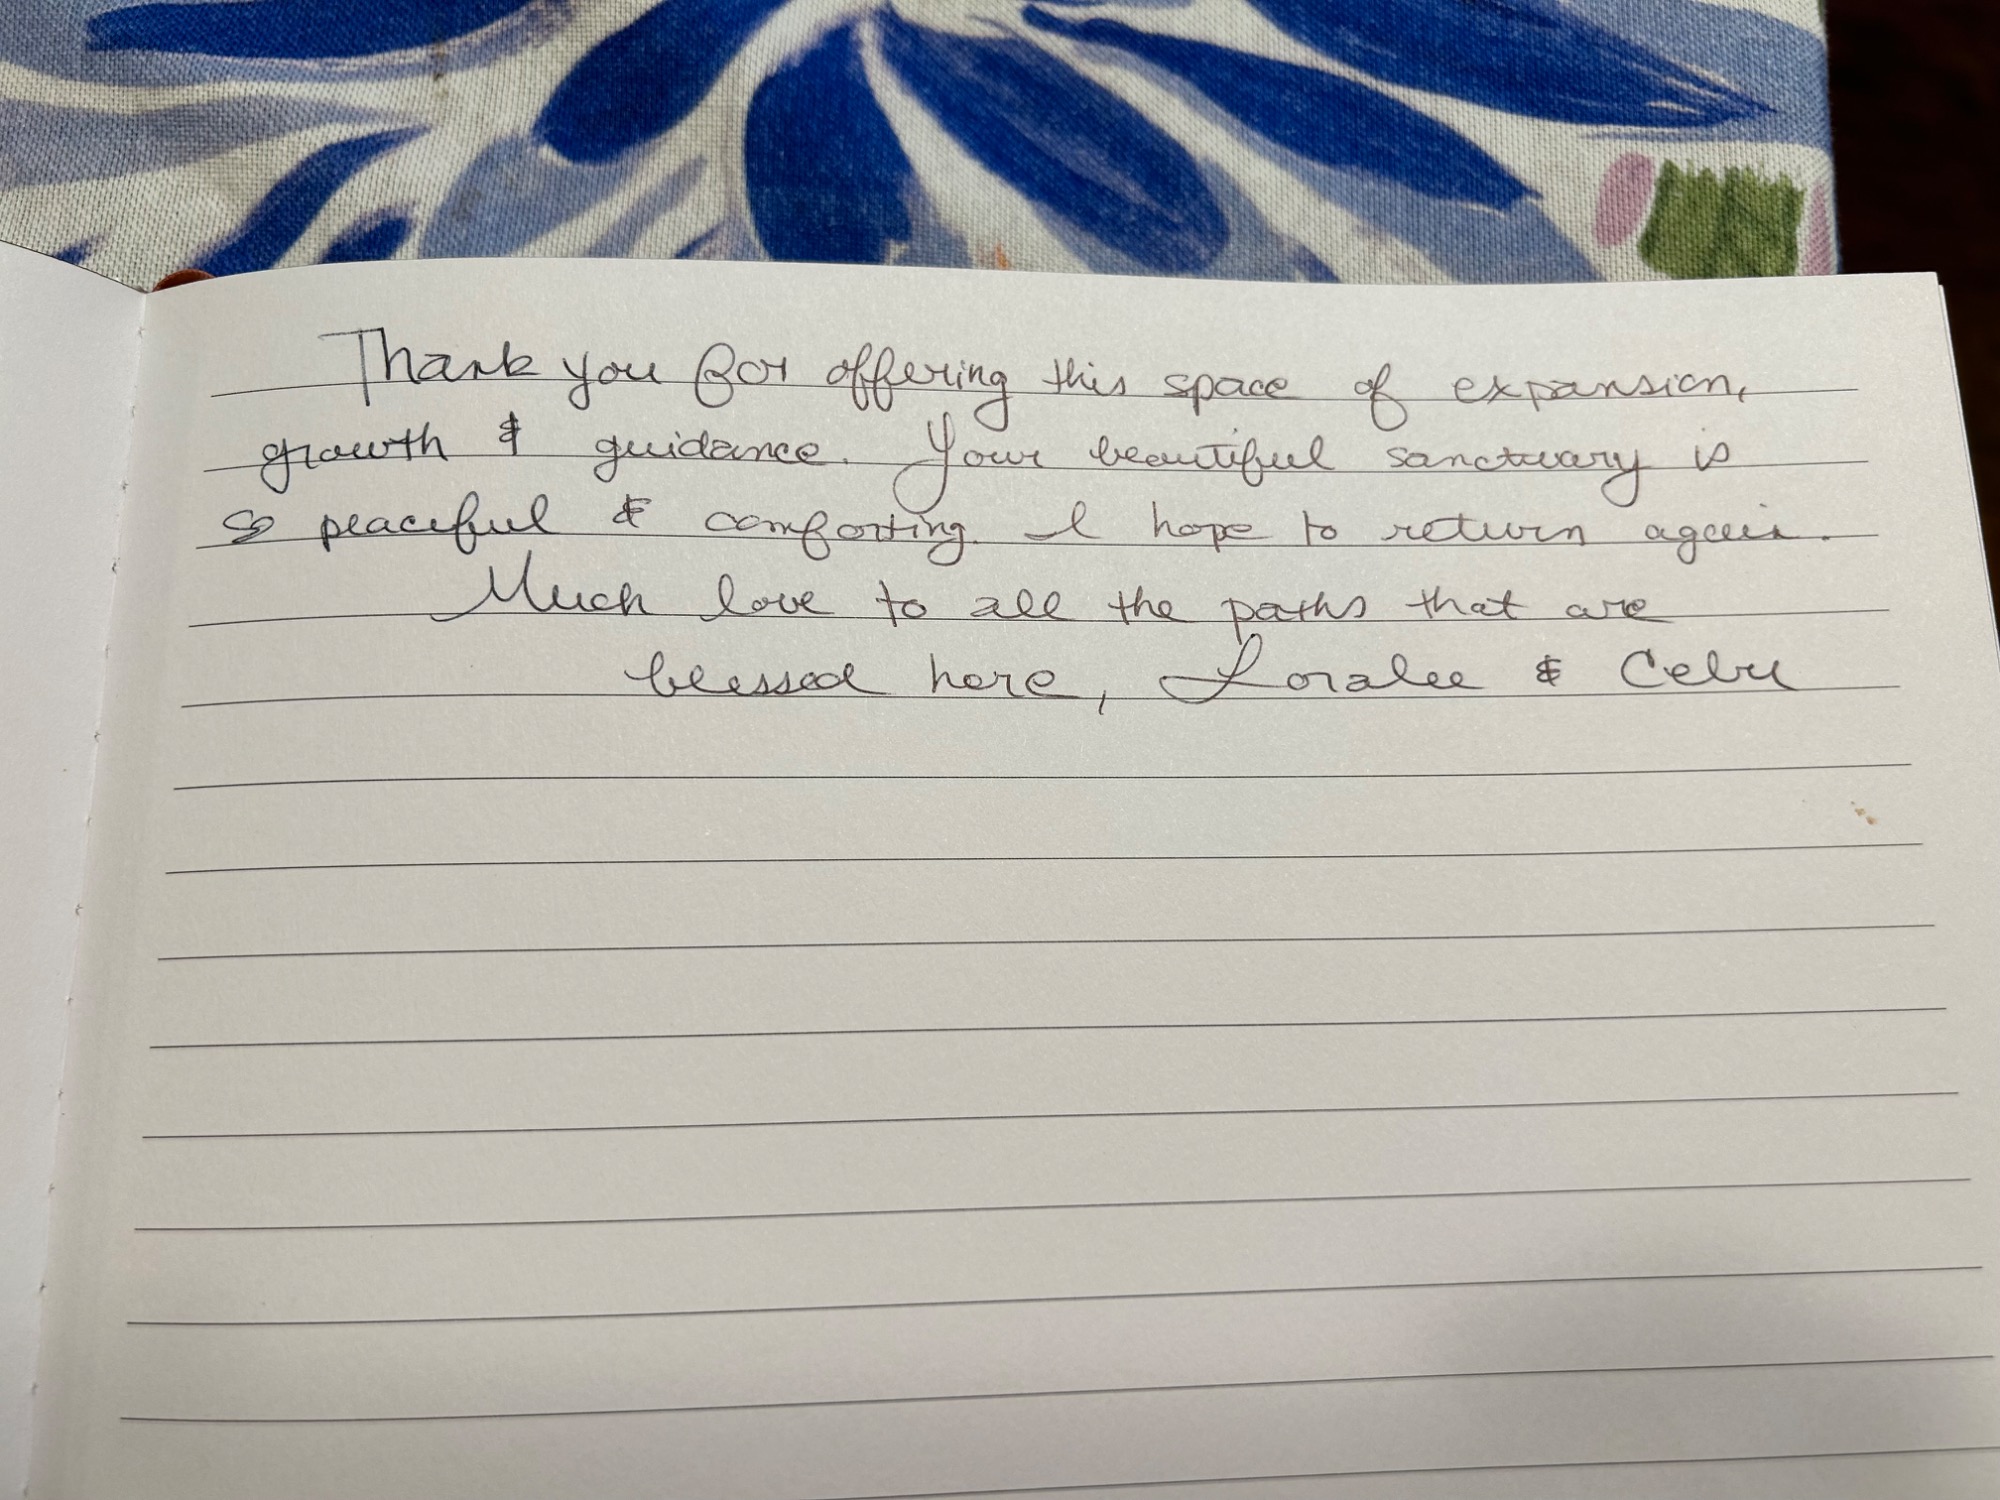 Thank you for offering this space of expansion,
growth & guidance. Your beautiful sanctuary is
so peaceful & comforting. I hope to return again.
Much love to all the paths that are
blessed here, Loralee & Cebu